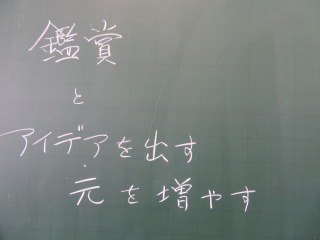 鑑賞
と
アイデアを出す
元を増やす